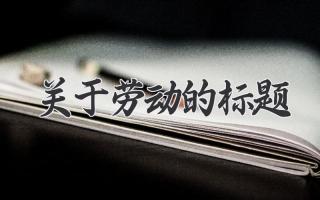 关于劳动的标题